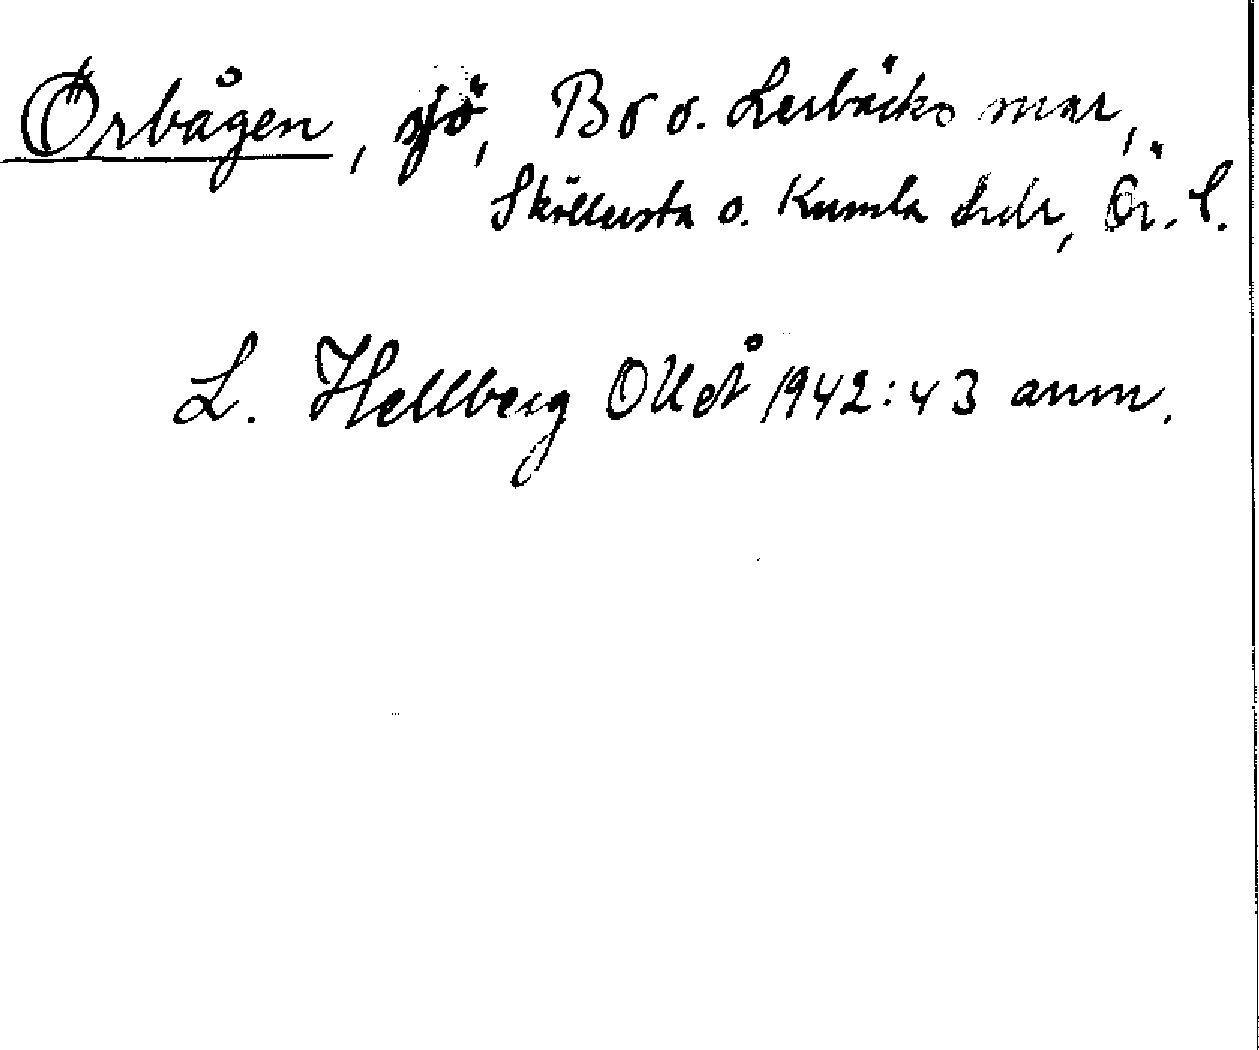 Örbågen, sjö, Bo o. Lerbäcks snar,
Sköllersta o. Kumla hdr, Ör. l.
L. Hellberg OUoÅ 1942:43 anm.